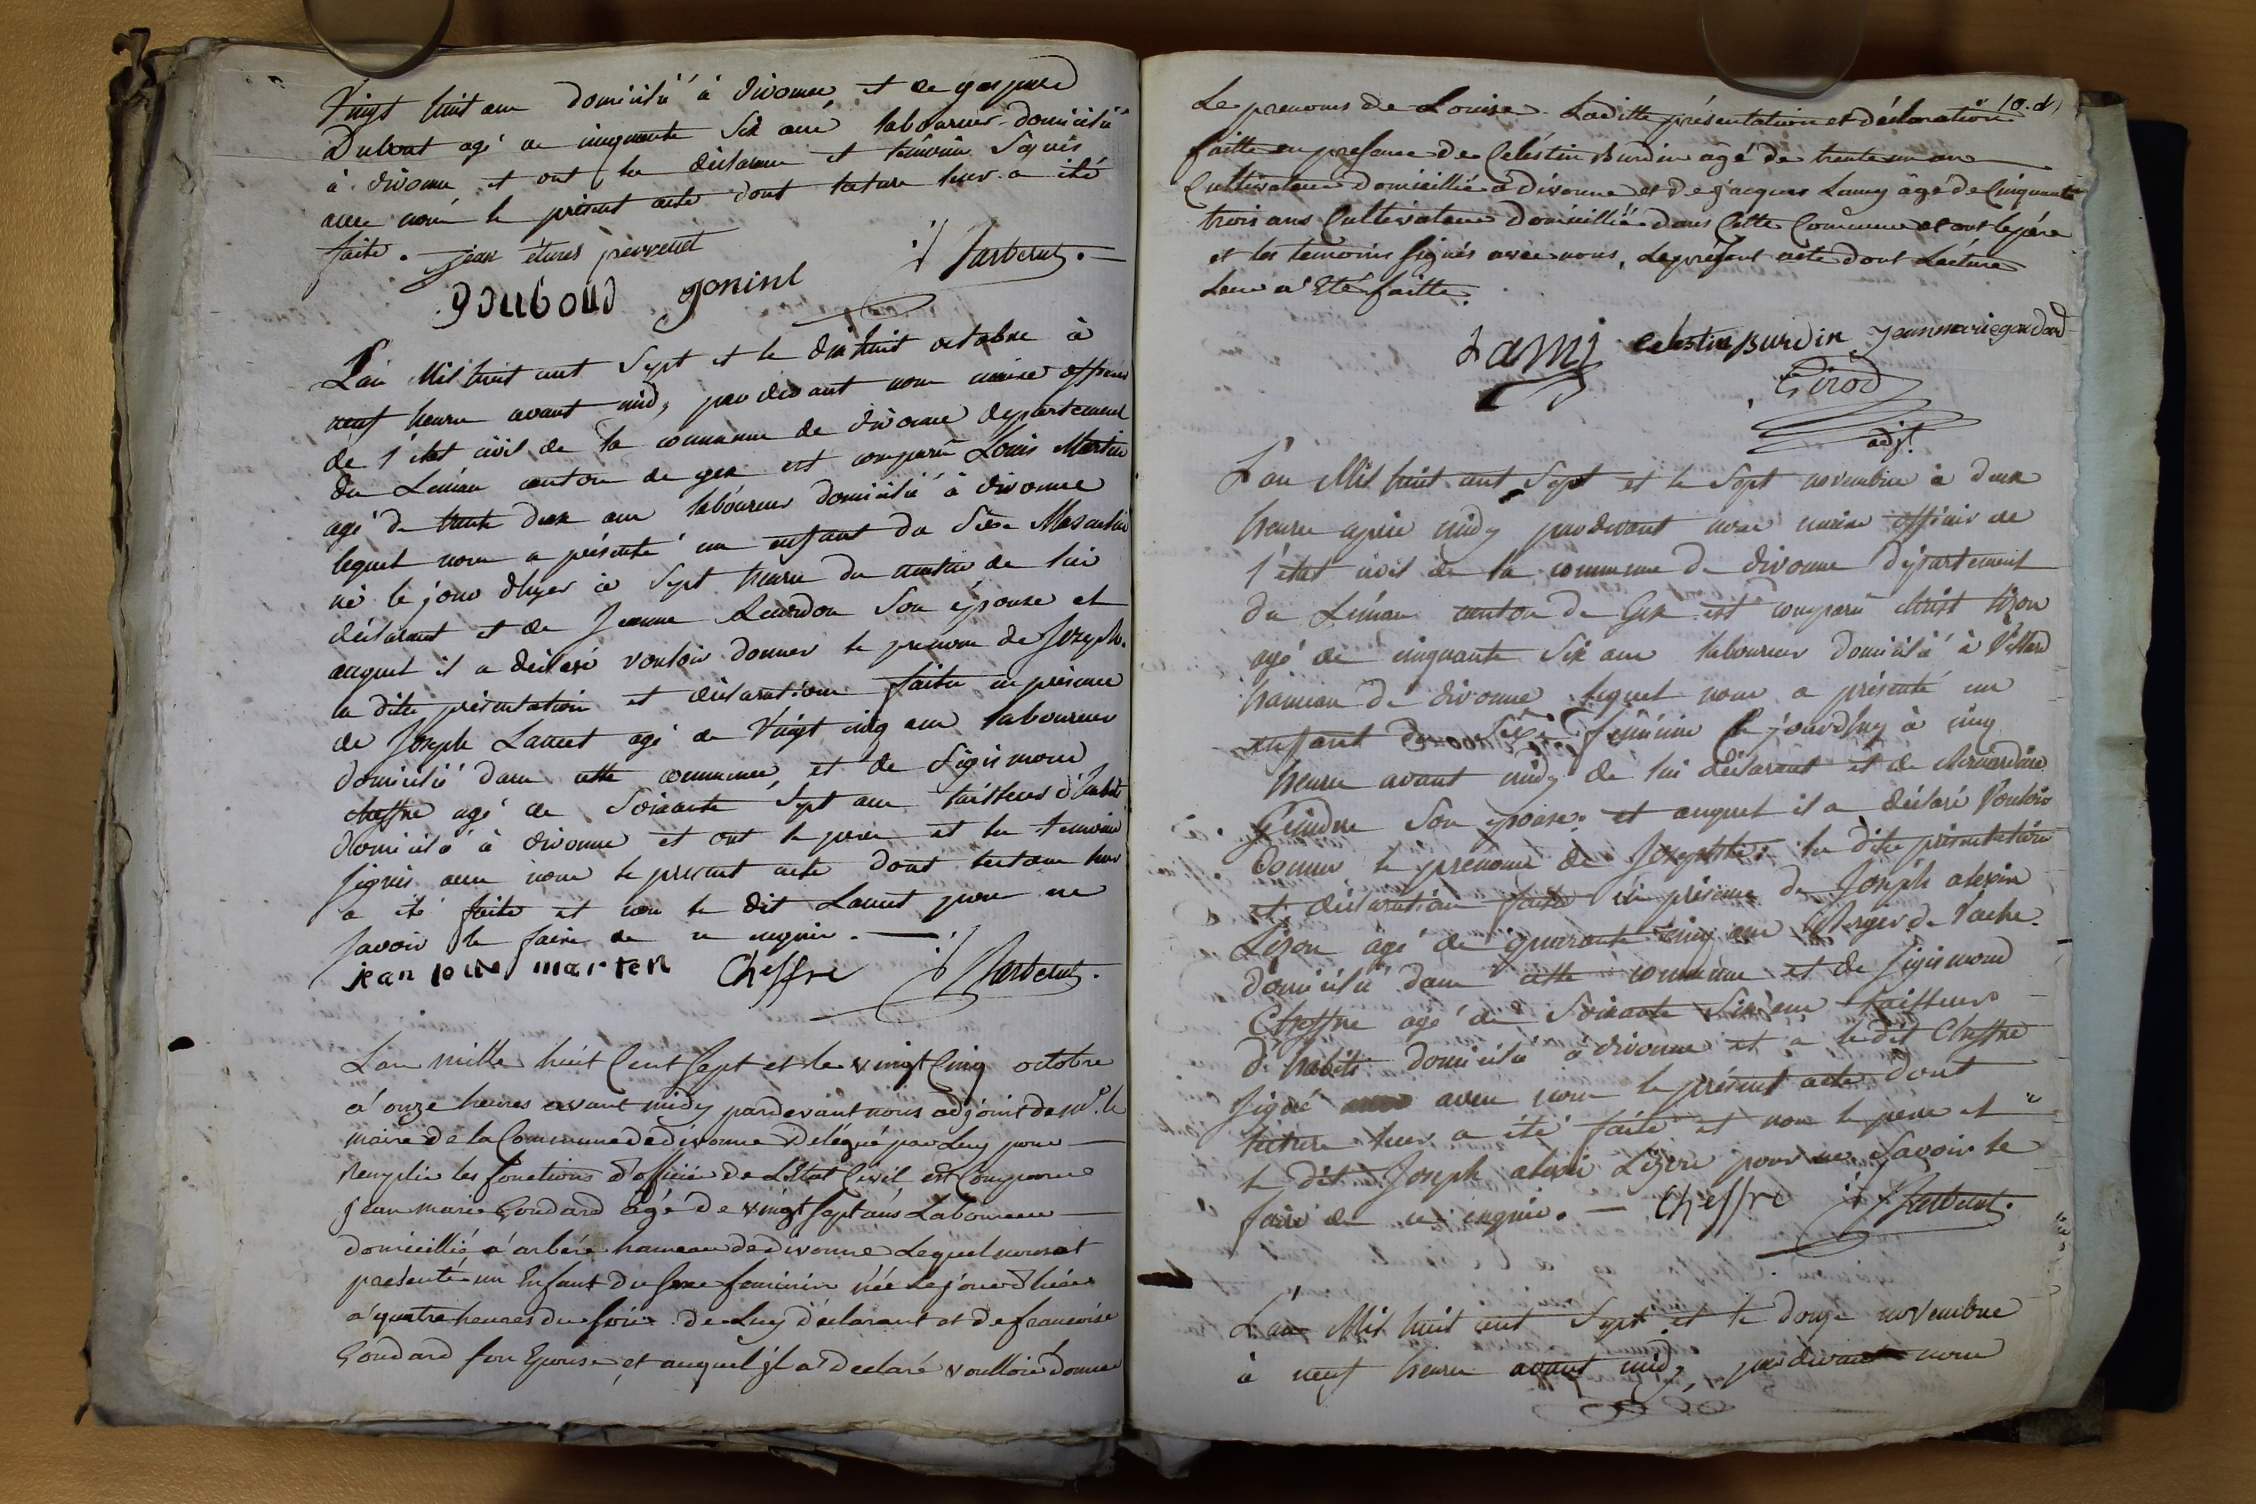 Vingt huit ans domicilié à divonne et de gaspard
Duboul agé de cinquante six ans laboureur domicilié
à divonne et ont les déclarans et temoins signés
avec nous le présent acte dont lecture leur a été
faite. jean
gduboud gonint
L'an Mil huit cent sept et le dix huit octobre à
neuf heures avant midy, par devant nous maire officier
de l'état civil de la commune de divonne département
du Léman canton de gex est comparu Louis Martin
agé de trente deux ans laboureur domicilié à divonne
lequel nous a présenté un enfant du séxe Masculin
né le jour d'hyer à sept heures du matin de lui
déclarant et de Jeanne son épouse et
auquel il a déclaré vouloir donner le prenom de Joseph.
la dite présentation et déclaration faite en présence
de Joseph Lancet agé de Vingt cinq ans laboureur
domicilié dans cette commune, et de Sigismond
cheffre agé de soixante sept ans tailleur d'habit
domicilié à divonne et ont le pere et les temoins
signés avec nous le present acte dont lecture leur
a été faite et non le dit Lancet pour ne
savoir le faire de ce enquis. —
jean louis marten Cheffre
L'an mille huit Cent Sept et le vingt Cinq octobre
a onze heures avant midy pardevant nous adjoint de mr. le
maire de la Commune de divonne délégué par Luy pour
Remplir les fonctions d'officier de L'Etat Civil est Comparu
jean marie Goudard âgé de vingt sept ans Laboureur
domicillié a arbére hameau de divonne Lequel nous at
présenté un Enfant du sexe feminin née Le jour d'hier
a quatre heures du soir de Luy déclarant et de francoise
Goudard son Epouse, et auquel jl a declaré voulloir donner
10. d
Le prenoms de Louise. Laditte présentation et déclaration
faitte en presance de Celéstin Burdin âgé de trente un an
Cultivateur domicillié a divonne et de jacques Lamy âgé de Cinquante
trois ans Cultivateur domicillié dans Cette Commune et ont le pére
et les temoins signés avec nous, le présent acte dont Lécture
Leur a Eté faitte.
Lami celestin Burdin jeanmarie goudard
Girod
adjt.
L'an Mil huit cent Sept et le Sept novembre à deux
heures après midy pardevant nous maire officier de
l'état civil de la commune de divonne département
du Léman canton de Gex est comparu christ Lizon
agé de cinquante six ans laboureur domicilié à Villard
hameau de divonne lequel nous a présenté un
enfant du séxe féminin le jourd'huy à cinq
heures avant midy de lui déclarant et de Bernardine
Geindre son épouse. et auquel il a déclaré Vouloir
donner le prenom de Josephte. la dite présentation
et déclaration faite en présence de Joseph alexis
Lizon agé de quarante cinq ans Berger de Vache.
domicilié dans cette commune et de Sigismond
Cheffre agé de soixante six ans tailleur
d'habits domicilié à divonne et a le dit Cheffre
signé avec nous le présent acte dont
lecture leur a été faite et non le pere et
le dit Joseph alexis Lizon pour ne savoir le
faire de ce enquis. — Cheffre
L'an Mil huit cent Sept et le douze novembre
à neuf heures avant midy, par devant nous